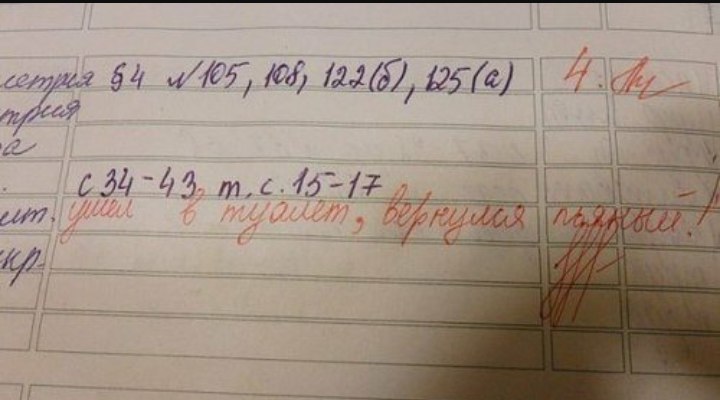 метрия §4 №105, 108, 122(б), 125(а) 4.
трия
а
с 34-43 т. с. 15-17
ушел в туалет, вернулся пьяный!